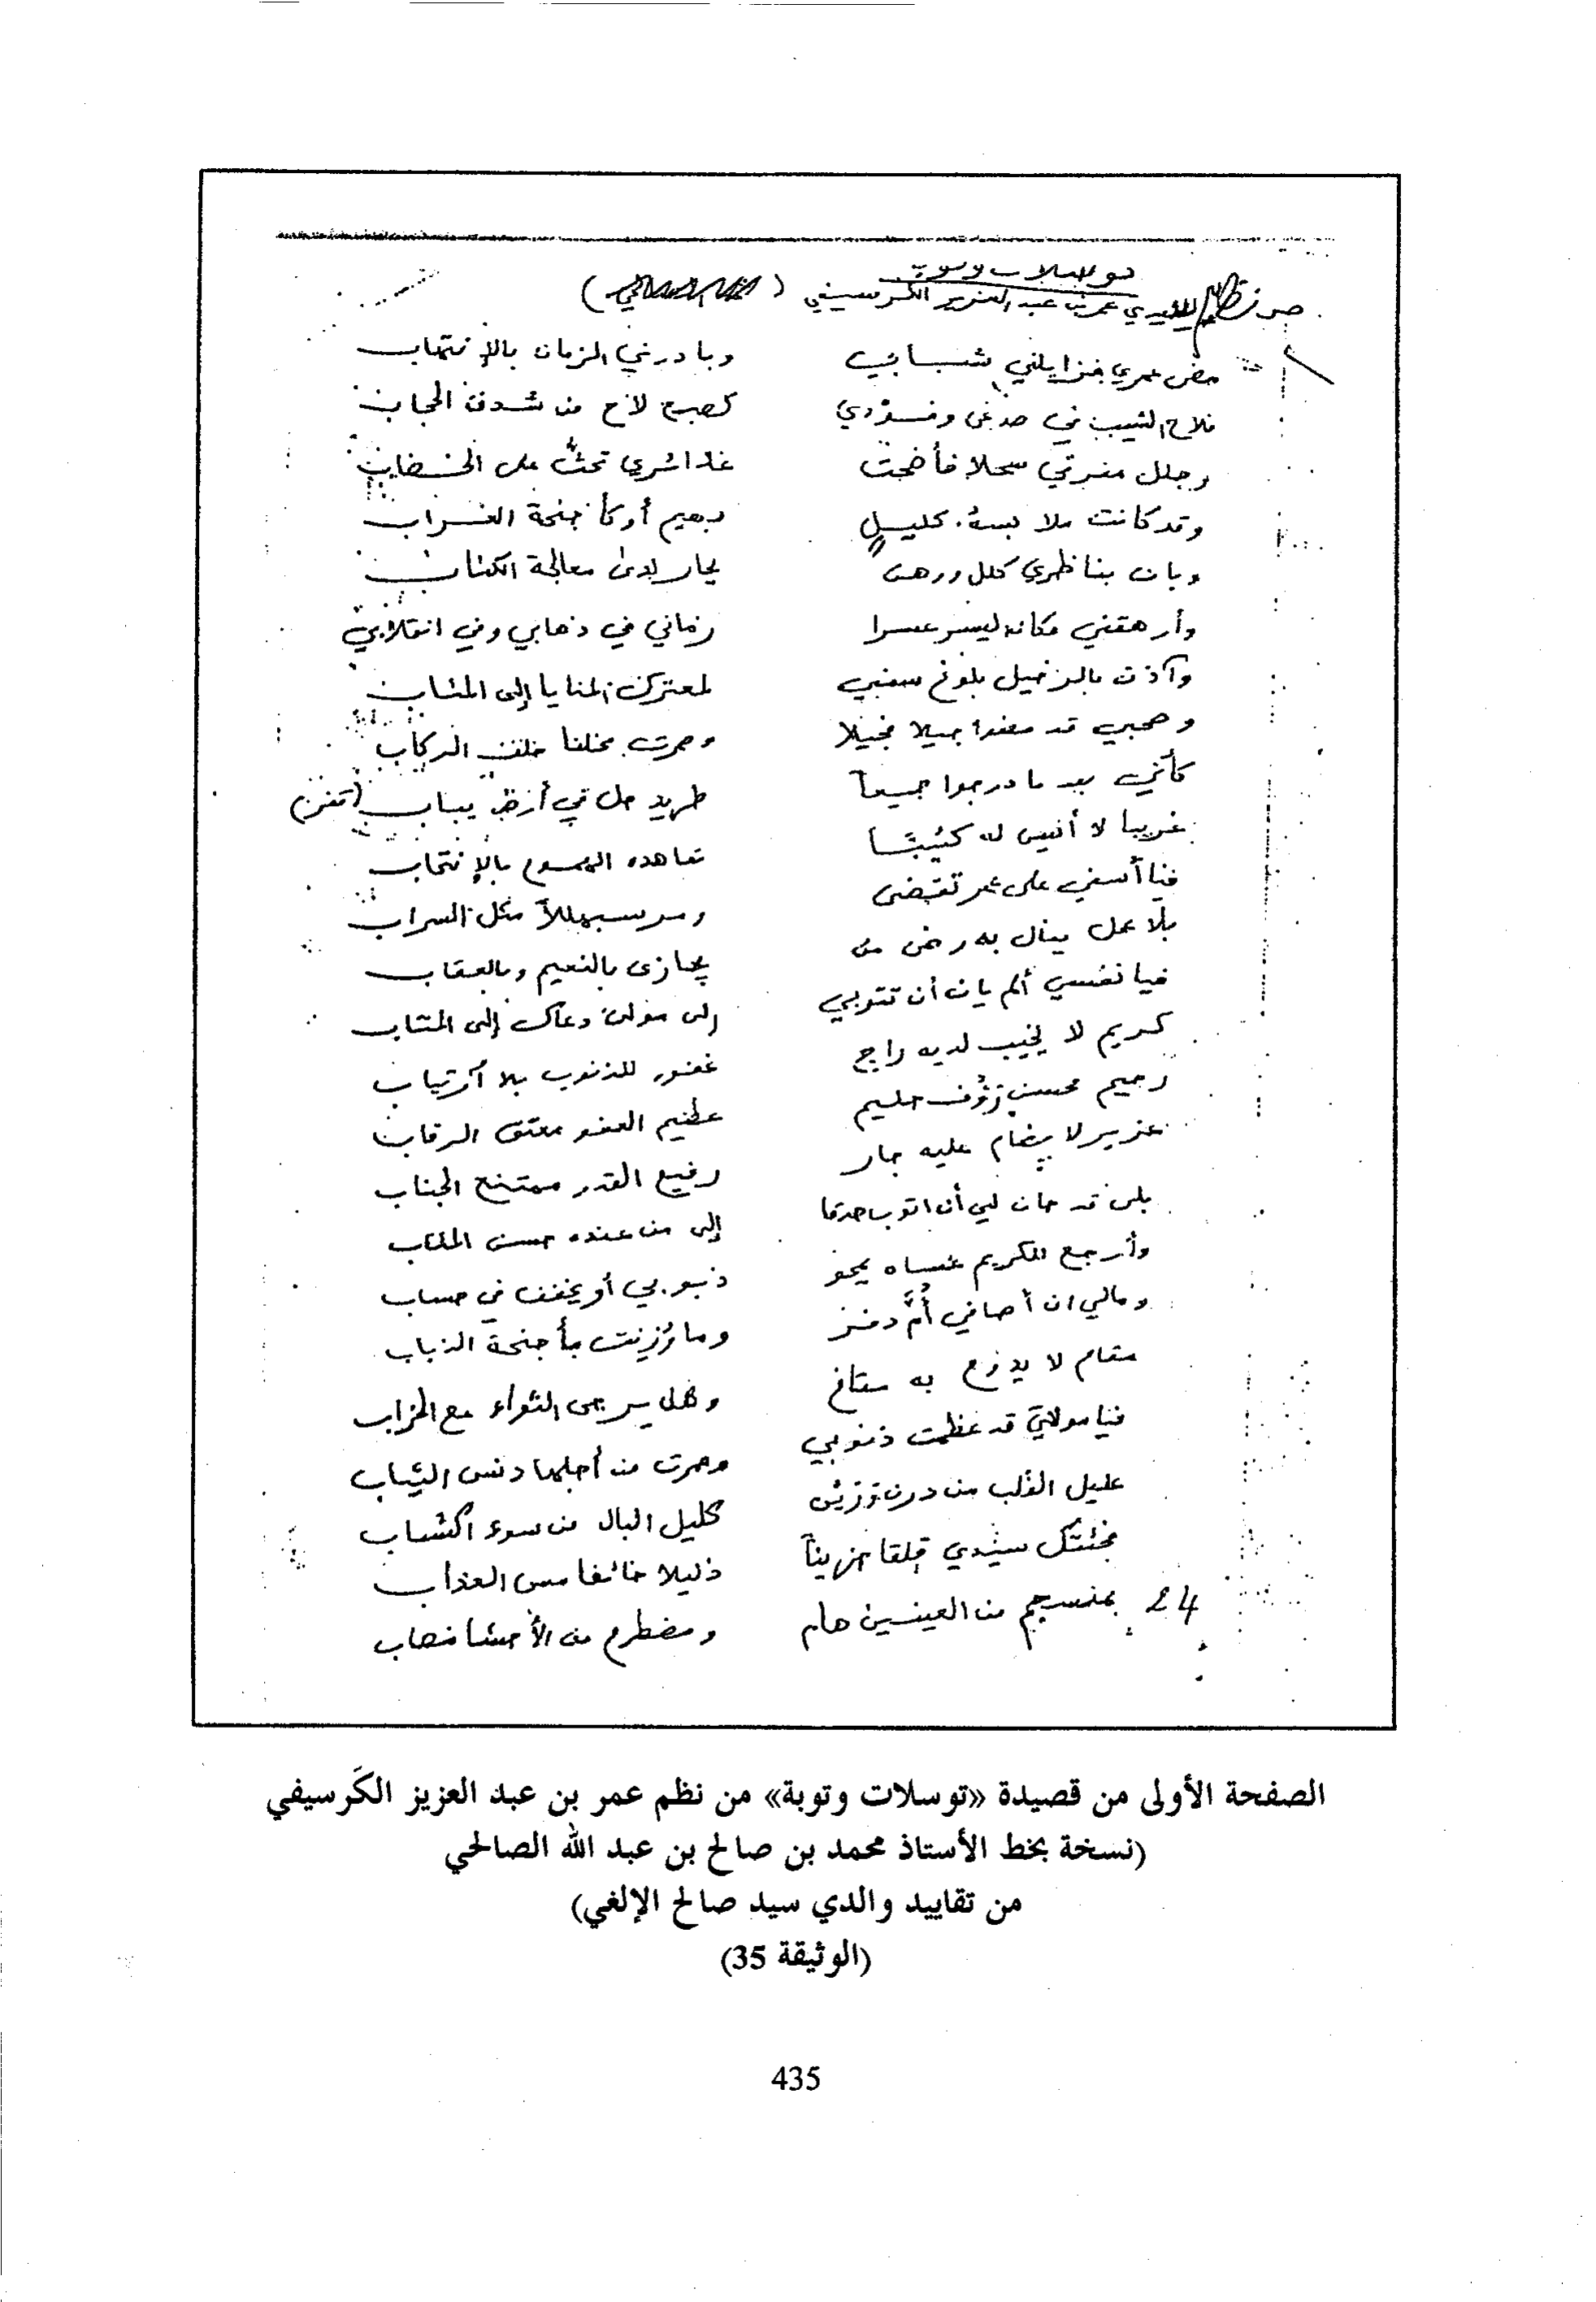 توسلات وتوبة
من نظم سيدي عمر بن عبد العزيز الكرسيفي
مضى عمري فزايلني شبابي وبادرني الزمان بالإنتهاب
فلاح الشيب في صدغي وفودي كصبح لاح من شدف الحجاب
وجلل مفرقي سحلا فأضحت غدائري تحث على الخضاب
وقد كانت ملابسه كليل بهيم أو كأجنحة الغراب
وبان بناظري كلل ووهن يحار لدى معالجة الكتاب
وأرهقني مكان اليسر عسرا زماني في ذهابي وفي انقلابي
وآذن بالرحيل بلوغ سني لمعترك المنايا إلى المئاب
وصحبي قد مضوا جيلا فجيلا وصرت مخلفا خلف الركاب
كأني بعد ما درجوا جميعا طريد حل في أرض يباب (قفر)
غريبا لا أنيس له كئيبا تعاهده الهموم بالإنتحاب
فيا أسفي على عمر تقضى ومر سبهللا مثل السراب
بلا عمل ينال به رضى من يجازى بالنعيم وبالعقاب
فيا نفسي ألم يان أن تتوبي إلى مولى دعاك إلى المتاب
كريم لا يخيب لديه راج غفور للذنوب بلا ارتياب
رحيم محسن رؤف حليم عظيم العفو معتق الرقاب
عزيز لا يضام عليه جار رفيع القدر ممتنع الجناب
بلى قد حان لي أن اتوب صدقا إلى من عنده حسن المئاب
وأرجع للكريم عساه يمحو ذنوبي أو يخفف في حساب
ومالي ان أصافي أم دفر وما رزنت بأجنحة الذباب
مقام لا يدوم به متاع وهل يرجى الثواء مع الخراب
فيا مولاي قد عظمت ذنوبي وصرت من أجلها دنس الثياب
عليل القلب من درن ورين كليل البال من سوء اكتساب
فجئتك سيدي قلقا حزينا ذليلا خائفا مس العذاب
24 بمنسجم من العينين هام ومضطرم من الأحشا صاب
الصفحة الأولى من قصيدة «توسلات وتوبة» من نظم عمر بن عبد العزيز الكَرسيفي
(نسخة بخط الأستاذ محمد بن صالح بن عبد الله الصالحي
من تقاييد والدي سيد صالح الإلغي)
(الوثيقة 35)
435